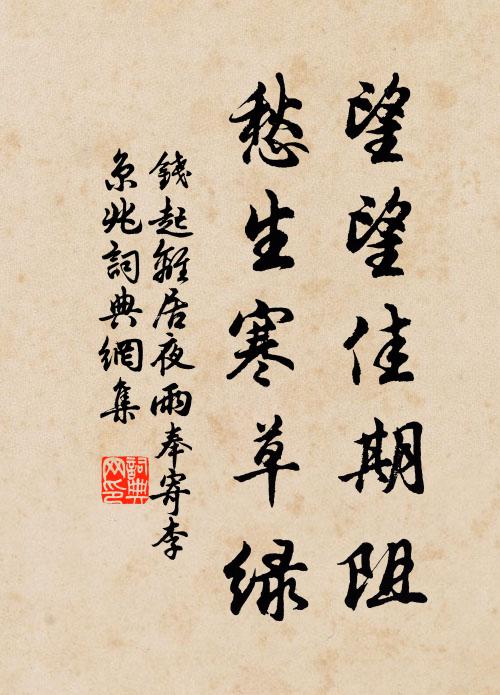 望望佳期阻
愁生寒草绿
錢起離居夜雨奉寄李
京兆詞典網集
詞典網印